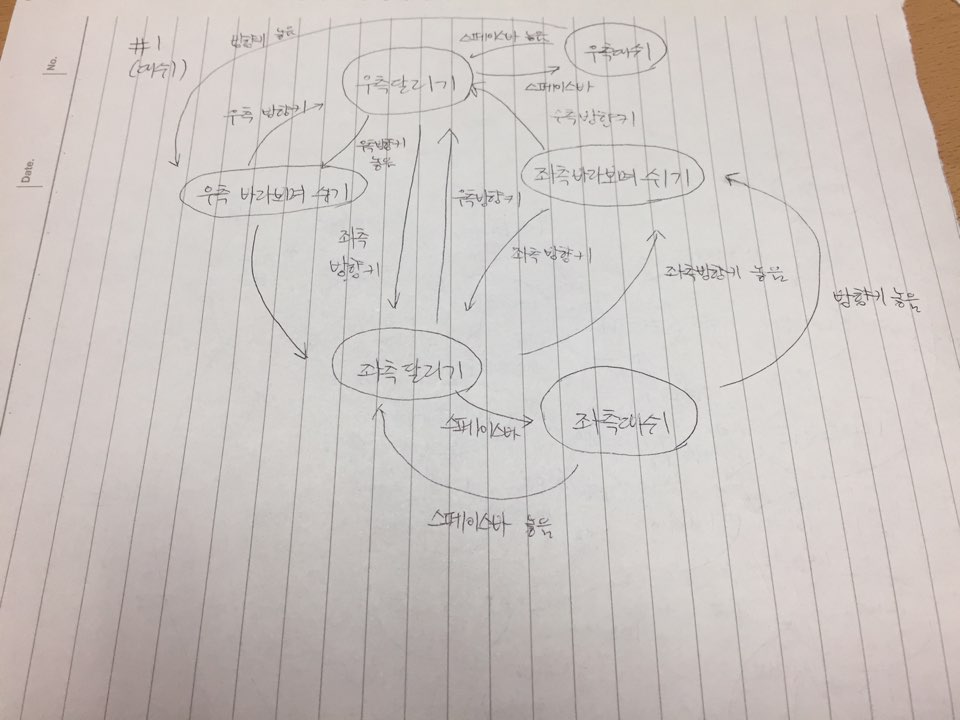 No.
Date.
#1
(대쉬)
방향키 놓음
스페이스바 놓음
우측대쉬
우측달리기
스페이스바
우측 방향키
우측방향키
우측방향키
놓음
좌측바라보며 쉬기
우측 바라보며 쉬기
우측방향키
좌측
방향키
좌측방향키
좌측방향키 놓음
방향키 놓음
좌측달리기
스페이스바
좌측대쉬
스페이스바 놓음